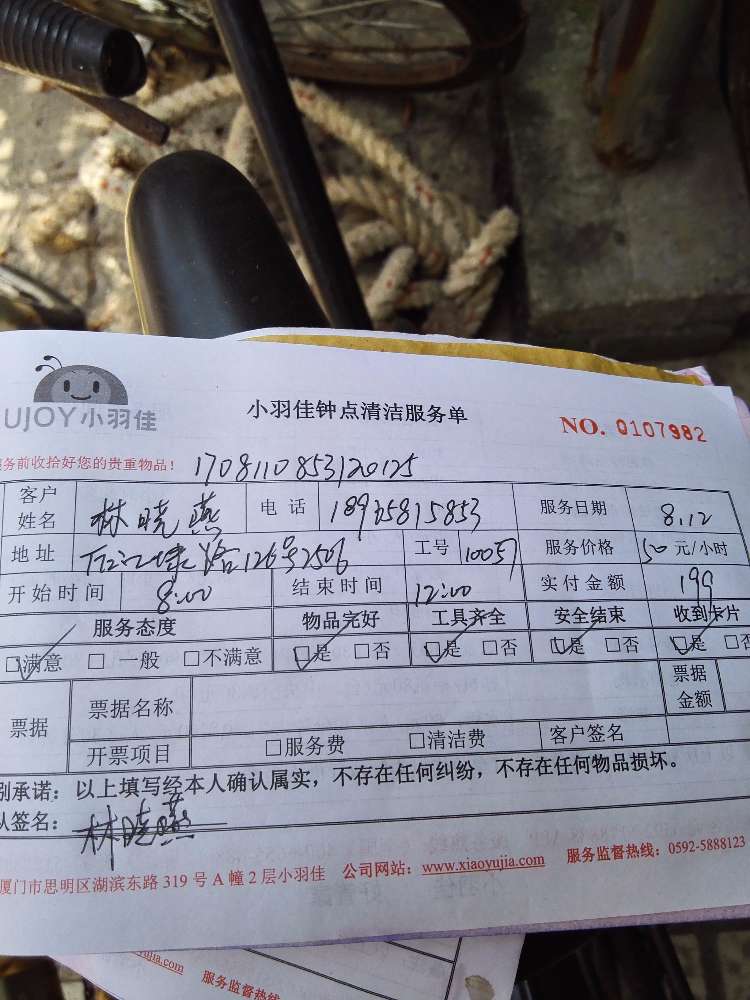 UJOY小羽佳
小羽佳钟点清洁服务单
NO. 0107982
务前收拾好您的贵重物品! 1708110853120125
客户姓名 林晓燕 电话 18965815853 服务日期 8.12
地址 126号2506 工号 10057 服务价格 50 元/小时
开始时间 8:00 结束时间 12:00 实付金额 199
服务态度 物品完好 工具齐全 安全结束 收到卡片
□满意 □一般 □不满意 □是 □否 □是 □否 □是 □否 □是 □否
票据 票据名称 票据金额
开票项目 □服务费 □清洁费 客户签名
别承诺:以上填写经本人确认属实,不存在任何纠纷,不存在任何物品损坏。
认签名: 林晓燕
厦门市思明区湖滨东路 319 号 A 幢 2 层小羽佳 公司网站:www.xiaoyujia.com 服务监督热线:0592-5888123
yujia.com 服务监督热线